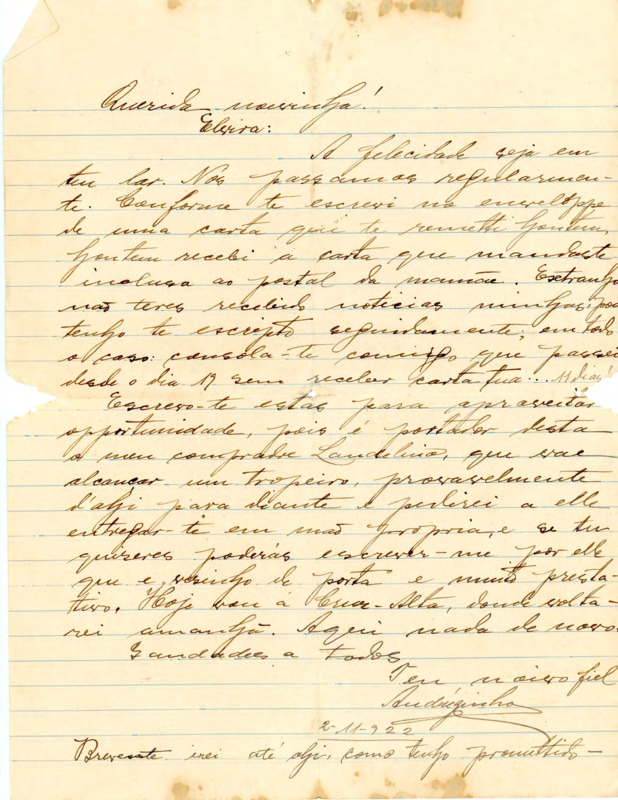 Querida noivinha!
Elvira:
A felicidade seja em
teu lar. Nós passamos regularmen-
te. Conforme te escrevi no enveloppe
de uma carta que te remetti hontem,
hontem recebi a carta que mandaste
inclusa ao postal da mamãe. Extranho
não teres recebido noticias minhas, pois
tenho te escripto seguidamente; em todo
o caso: consola-te comigo que passei
desde o dia 19 sem receber carta tua... 11 dias!
Escrevo-te estas para aproveitar
opportunidade, pois é portador desta
o meu compadre Landelino, que vae
alcançar um tropeiro, provavelmente
d'ahi para diante e pedirei a elle
entregar-te em mão propria, e se tu
quiseres poderás escrever-me por elle
que e "visinho de porta" e muito presta-
tivo. Hoje vou á Cruz-Alta, donde volta-
rei amanhã. Aqui nada de novo.
Saudades a todos
Teu noivo fiel
Andrézinho
2-11-922
Brevente irei até ahi, como tenho promettido-